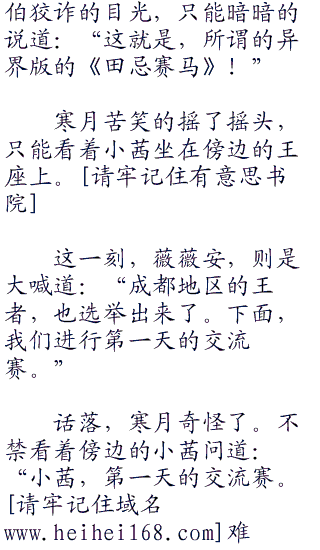 伯狡诈的目光，只能暗暗的
说道：“这就是，所谓的异
界版的《田忌赛马》！”
寒月苦笑的摇了摇头，
只能看着小茜坐在傍边的王
座上。[请牢记住有意思书
院]
这一刻，薇薇安，则是
大喊道：“成都地区的王
者，也选举出来了。下面，
我们进行第一天的交流
赛。”
话落，寒月奇怪了。不
禁看着傍边的小茜问道：
“小茜，第一天的交流赛。
[请牢记住域名
www.heihei168.com]难